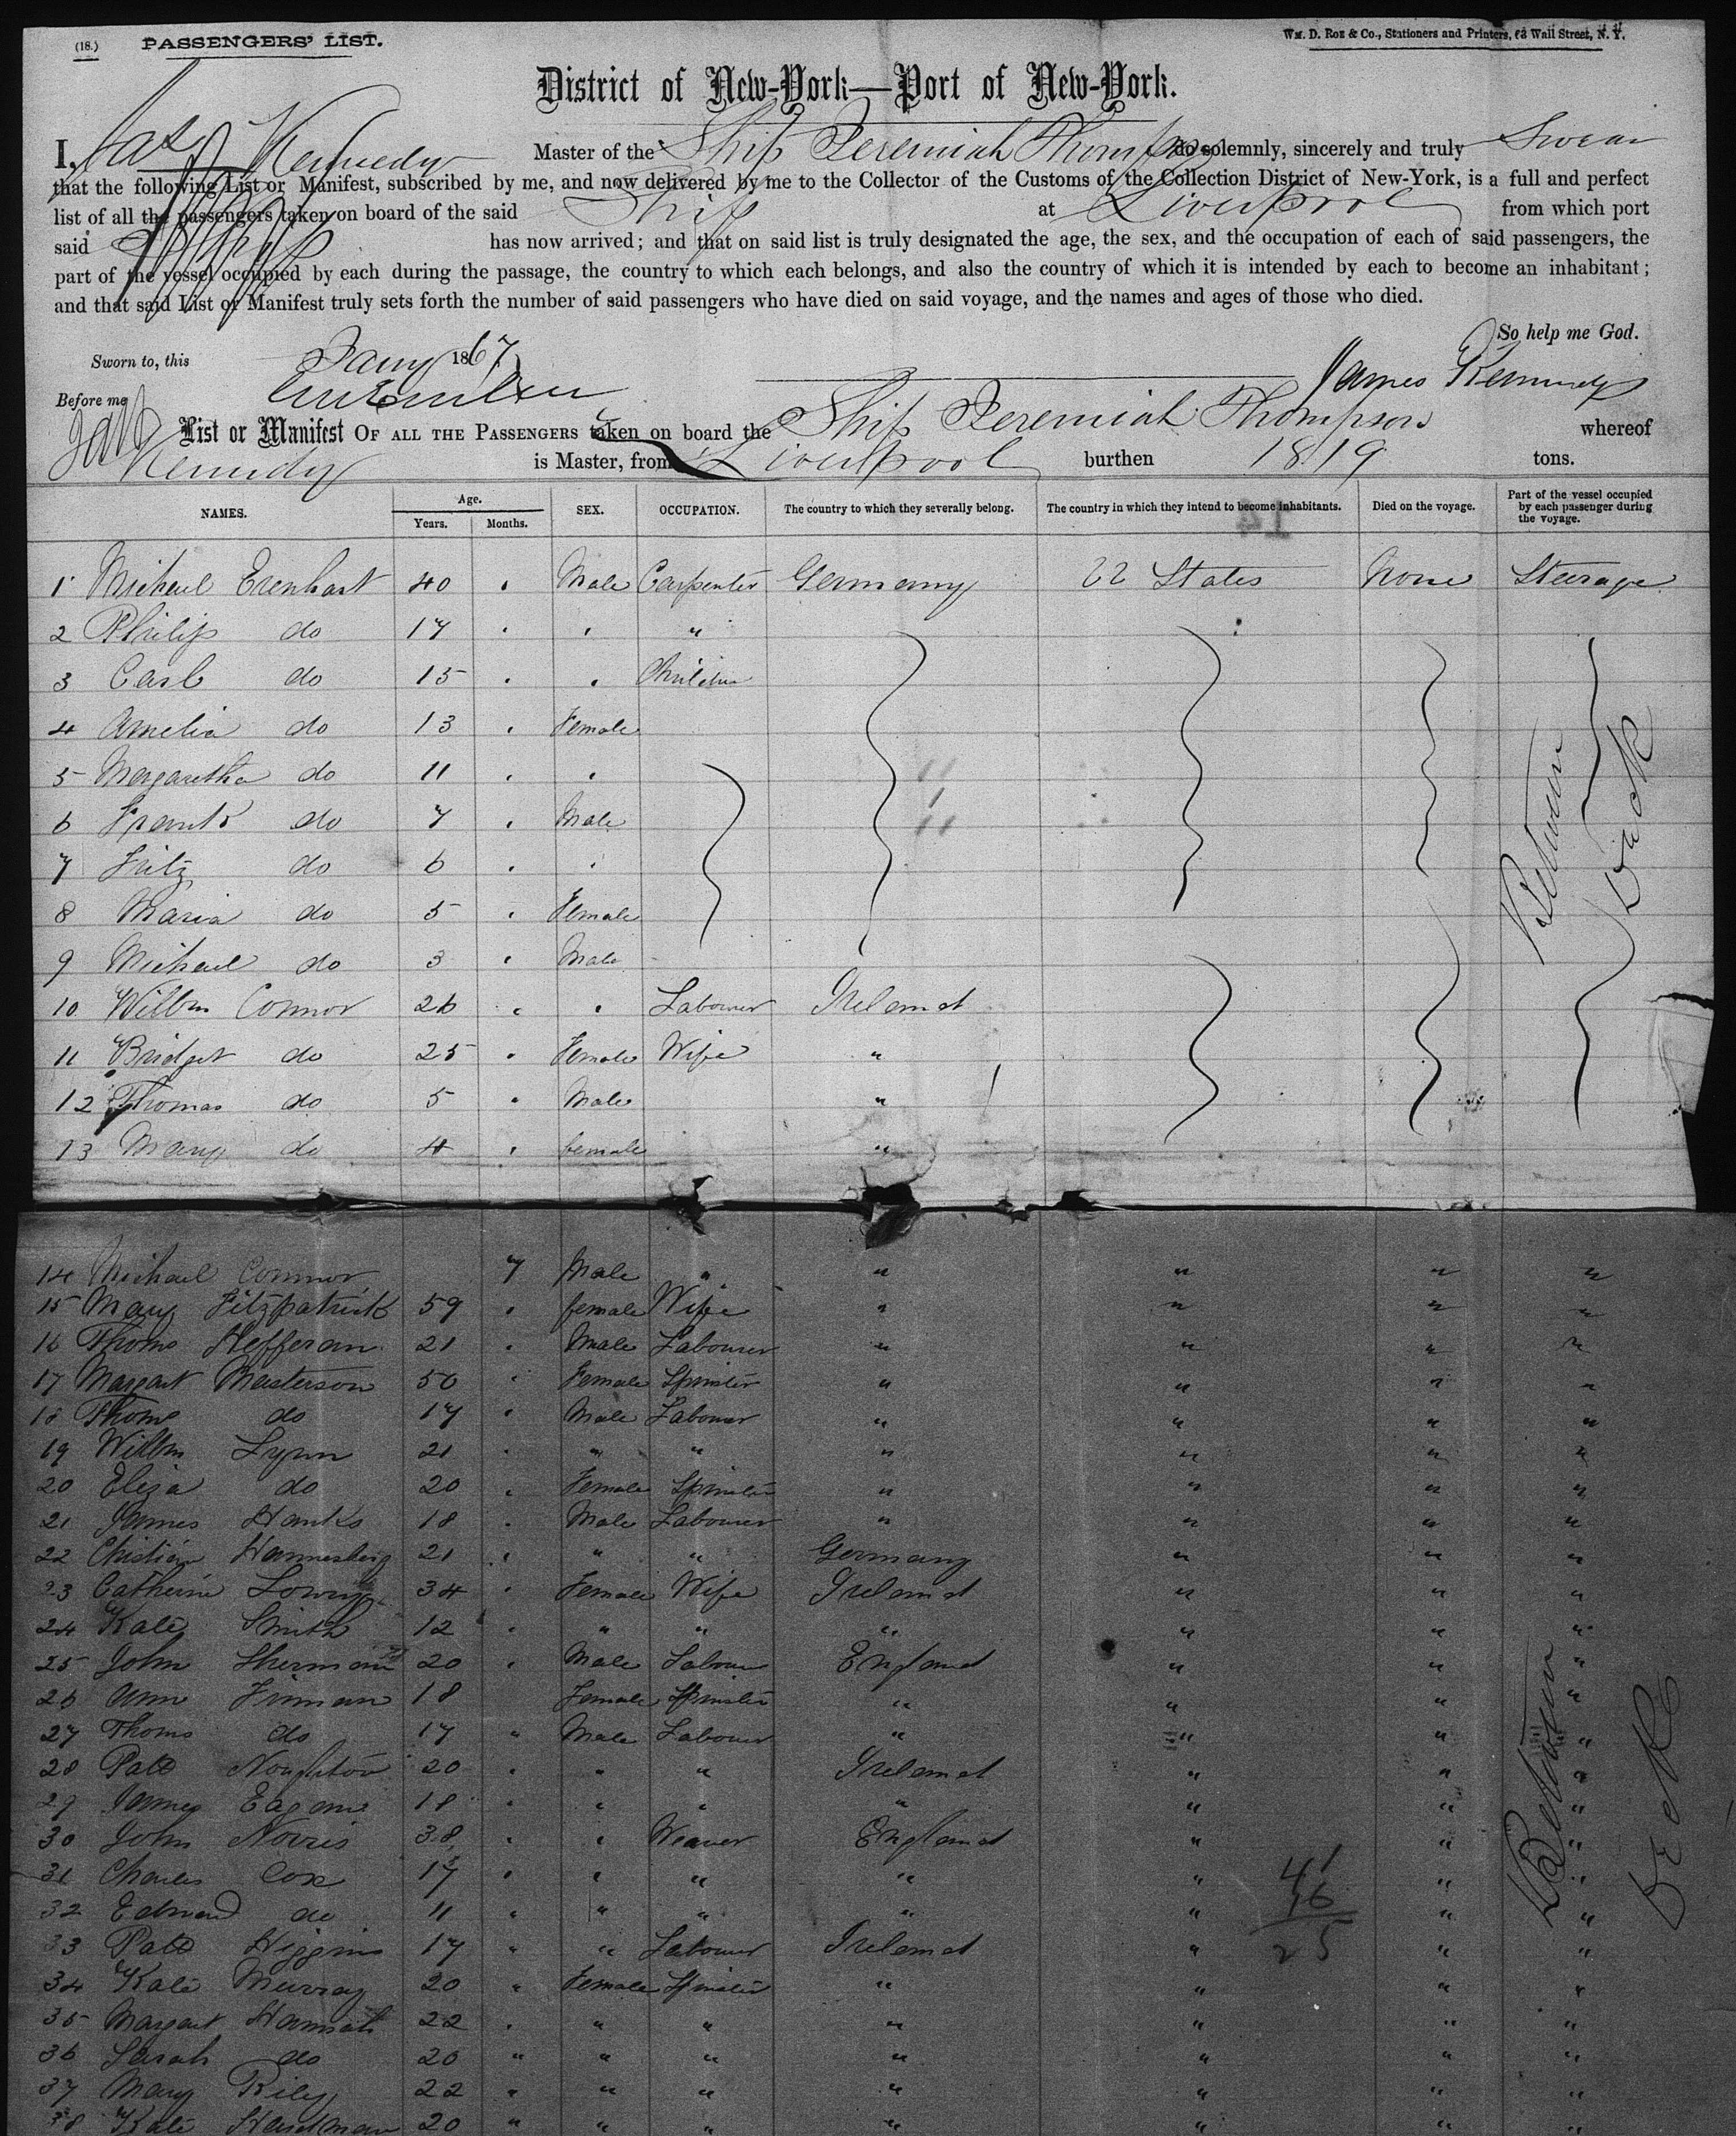 (18.) PASSENGERS' LIST.
Wm. D. Roe & Co., Stationers and Printers, 63 Wall Street, N. Y.
District of New-York—Port of New-York.
I, Jas Kennedy Master of the Ship Jeremiah Thompson do solemnly, sincerely and truly Swear
that the following List or Manifest, subscribed by me, and now delivered by me to the Collector of the Customs of the Collection District of New-York, is a full and perfect
list of all the passengers taken on board of the said Ship at Liverpool from which port
said Ship has now arrived; and that on said list is truly designated the age, the sex, and the occupation of each of said passengers, the
part of the vessel occupied by each during the passage, the country to which each belongs, and also the country of which it is intended by each to become an inhabitant;
and that said List or Manifest truly sets forth the number of said passengers who have died on said voyage, and the names and ages of those who died.
So help me God.
Sworn to, this Jany 1867
James Kennedy
Before me
List or Manifest OF ALL THE PASSENGERS taken on board the Ship Jeremiah Thompson whereof
Jas Kennedy is Master, from Liverpool burthen 1819 tons.
NAMES. Age. Years. Months. SEX. OCCUPATION. The country to which they severally belong. The country in which they intend to become inhabitants. Died on the voyage. Part of the vessel occupied by each passenger during the voyage.
1 Michael Erenhart 40 " Male Carpenter Germany U States None Steerage
2 Philip do 17 " " "
3 Carl do 15 " " Children
4 Amelia do 13 " Female
5 Margaretha do 11 " "
6 Frank do 7 " Male
7 Fritz do 6 " "
8 Maria do 5 " Female
9 Michael do 3 " Male
Between Deck
10 Willm Connor 26 " " Labourer Ireland
11 Bridget do 25 " Female Wife "
12 Thomas do 5 " Male "
13 Mary do 4 " female "
14 Michael Connor 7 Male " " " " "
15 Mary Fitzpatrick 59 " female Wife " " " "
16 Thoms Hefferan 21 " Male Labourer " " " "
17 Margart Masterson 50 " Female Spinster " " " "
18 Thoms do 17 " Male Labourer " " " "
19 Willm Lynn 21 " " " " " " "
20 Eliza do 20 " Female Spinster " " " "
21 James Hanks 18 " Male Labourer " " " "
22 Chistian 21 " " " Germany " " "
23 Catherine Lowry 34 " Female Wife Ireland " " "
24 Kate Smith 12 " " " " " " "
25 John Sherman 20 " Male Labour England " " "
26 Ann Finnan 18 Female Spinster " " " "
27 Thoms do 17 " Male Labourer " " " "
28 Patk Noughton 20 " " " Ireland " " "
29 James Eagan 18 " " " " " " "
30 John Norris 38 " " Weaver England " " "
31 Charles Cox 17 " " " " " " "
32 Edward do 11 " " " " " " "
33 Patk Higgins 17 " " Labourer Ireland " " "
34 Kate Murray 20 " Female Spinster " " " "
35 Margart Hannah 22 " " " " " " "
36 Sarah do 20 " " " " " " "
37 Mary Riley 22 " " " " " " "
38 Kate Hardman 20 " " " " " " "
Between Deck
41
16
25